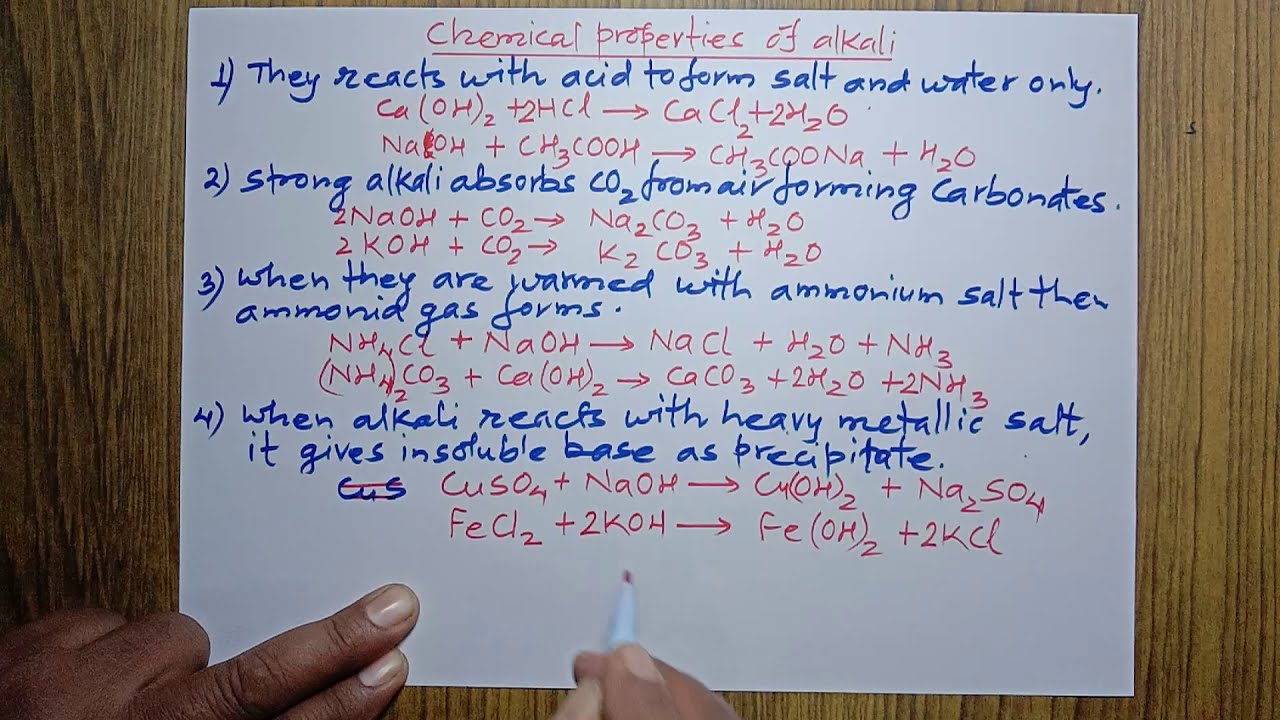 Chemical properties of alkali
1) They reacts with acid to form salt and water only.
Ca(OH)₂ + 2HCl → CaCl₂ + 2H₂O
NaOH + CH₃COOH → CH₃COONa + H₂O
2) Strong alkali absorbs CO₂ from air forming carbonates.
2NaOH + CO₂ → Na₂CO₃ + H₂O
2KOH + CO₂ → K₂CO₃ + H₂O
3) When they are warmed with ammonium salt then
ammonia gas forms.
NH₄Cl + NaOH → NaCl + H₂O + NH₃
(NH₄)₂CO₃ + Ca(OH)₂ → CaCO₃ + 2H₂O + 2NH₃
4) When alkali reacts with heavy metallic salt,
it gives insoluble base as precipitate.
CuS CuSO₄ + NaOH → Cu(OH)₂ + Na₂SO₄
FeCl₂ + 2KOH → Fe(OH)₂ + 2KCl
s